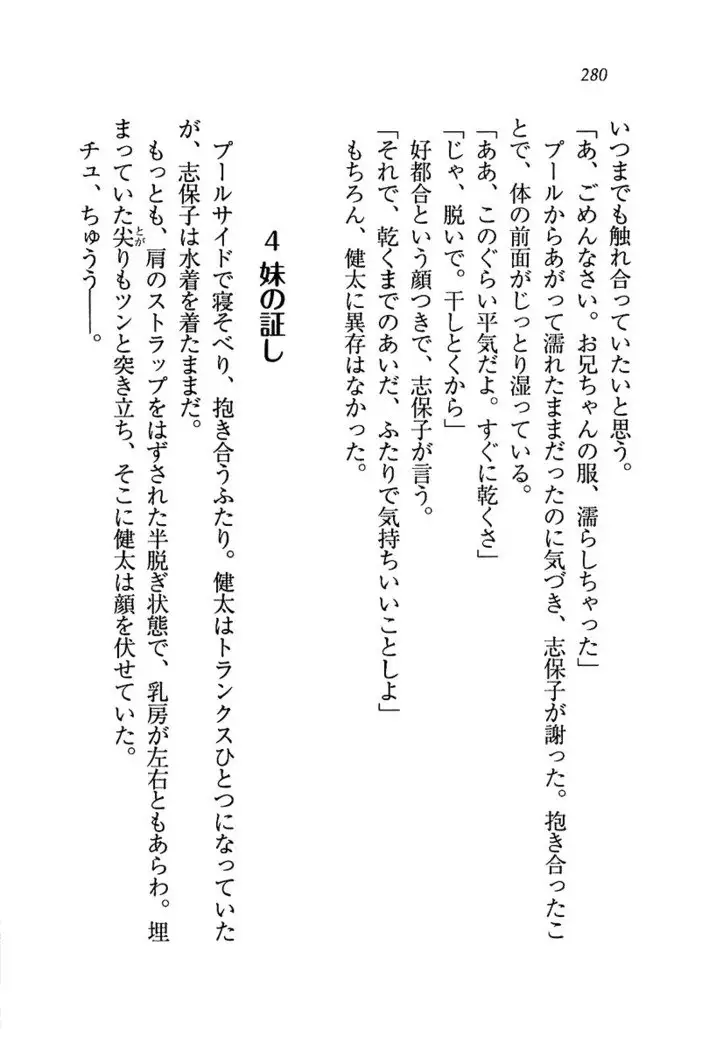 280
いつまでも触れ合っていたいと思う。
「あ、ごめんなさい。お兄ちゃんの服、濡らしちゃった」
プールからあがって濡れたままだったのに気づき、志保子が謝った。抱き合ったこ
とで、体の前面がじっとり湿っている。
「ああ、このぐらい平気だよ。すぐに乾くさ」
「じゃ、脱いで。干しとくから」
好都合という顔つきで、志保子が言う。
「それで、乾くまでのあいだ、ふたりで気持ちいいことしよ」
もちろん、健太に異存はなかった。
4 妹の証し
プールサイドで寝そべり、抱き合うふたり。健太はトランクスひとつになっていた
が、志保子は水着を着たままだ。
もっとも、肩のストラップをはずされた半脱ぎ状態で、乳房が左右ともあらわ。埋
まっていた尖りもツンと突き立ち、そこに健太は顔を伏せていた。
チュ、ちゅうう――。